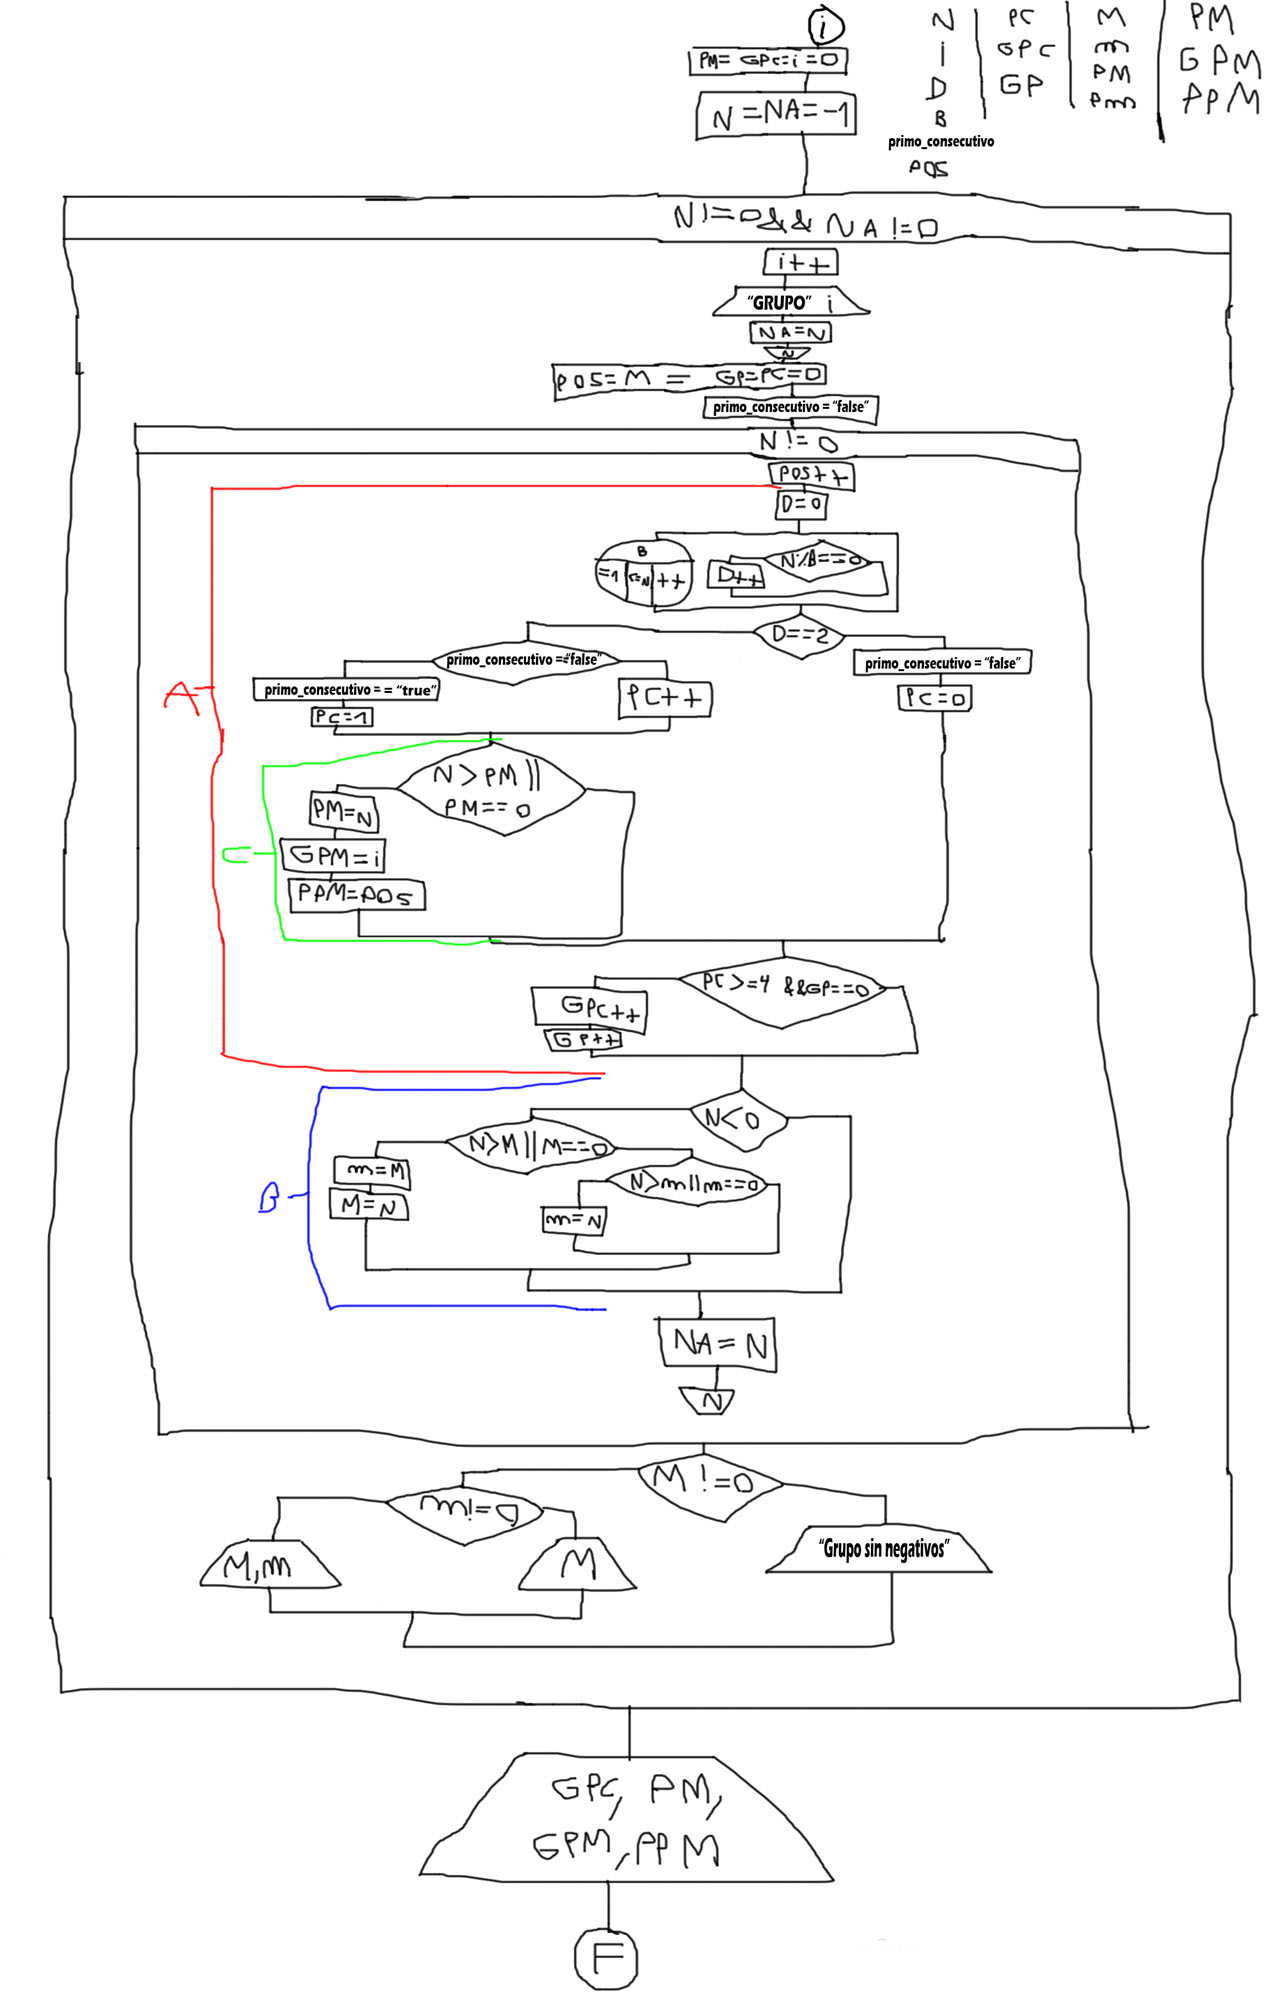 i
N PC M PM
i GPC m GPM
D GP PM PPM
B Pm
primo_consecutivo
POS
PM= GPC=i=0
N=NA=-1
N!=0&& NA!=0
i++
"GRUPO" i
NA=N
N
POS=M = GP=PC=0
primo_consecutivo = "false"
N!=0
POS++
D=0
B
=1 <=N ++
N%B==0
D++
D==2
primo_consecutivo =="false"
primo_consecutivo = = "true"
PC=1
PC++
primo_consecutivo = "false"
PC=0
A
N>PM ||
PM==0
PM=N
GPM=i
PPM=POS
C
PC>=4 &&GP==0
GPC++
GP++
N<0
N>M||M==0
m=M
M=N
N>m||m==0
m=N
B
NA=N
N
M!=0
m!=0
M,m
M
"Grupo sin negativos"
GPC, PM,
GPM,PPM
F